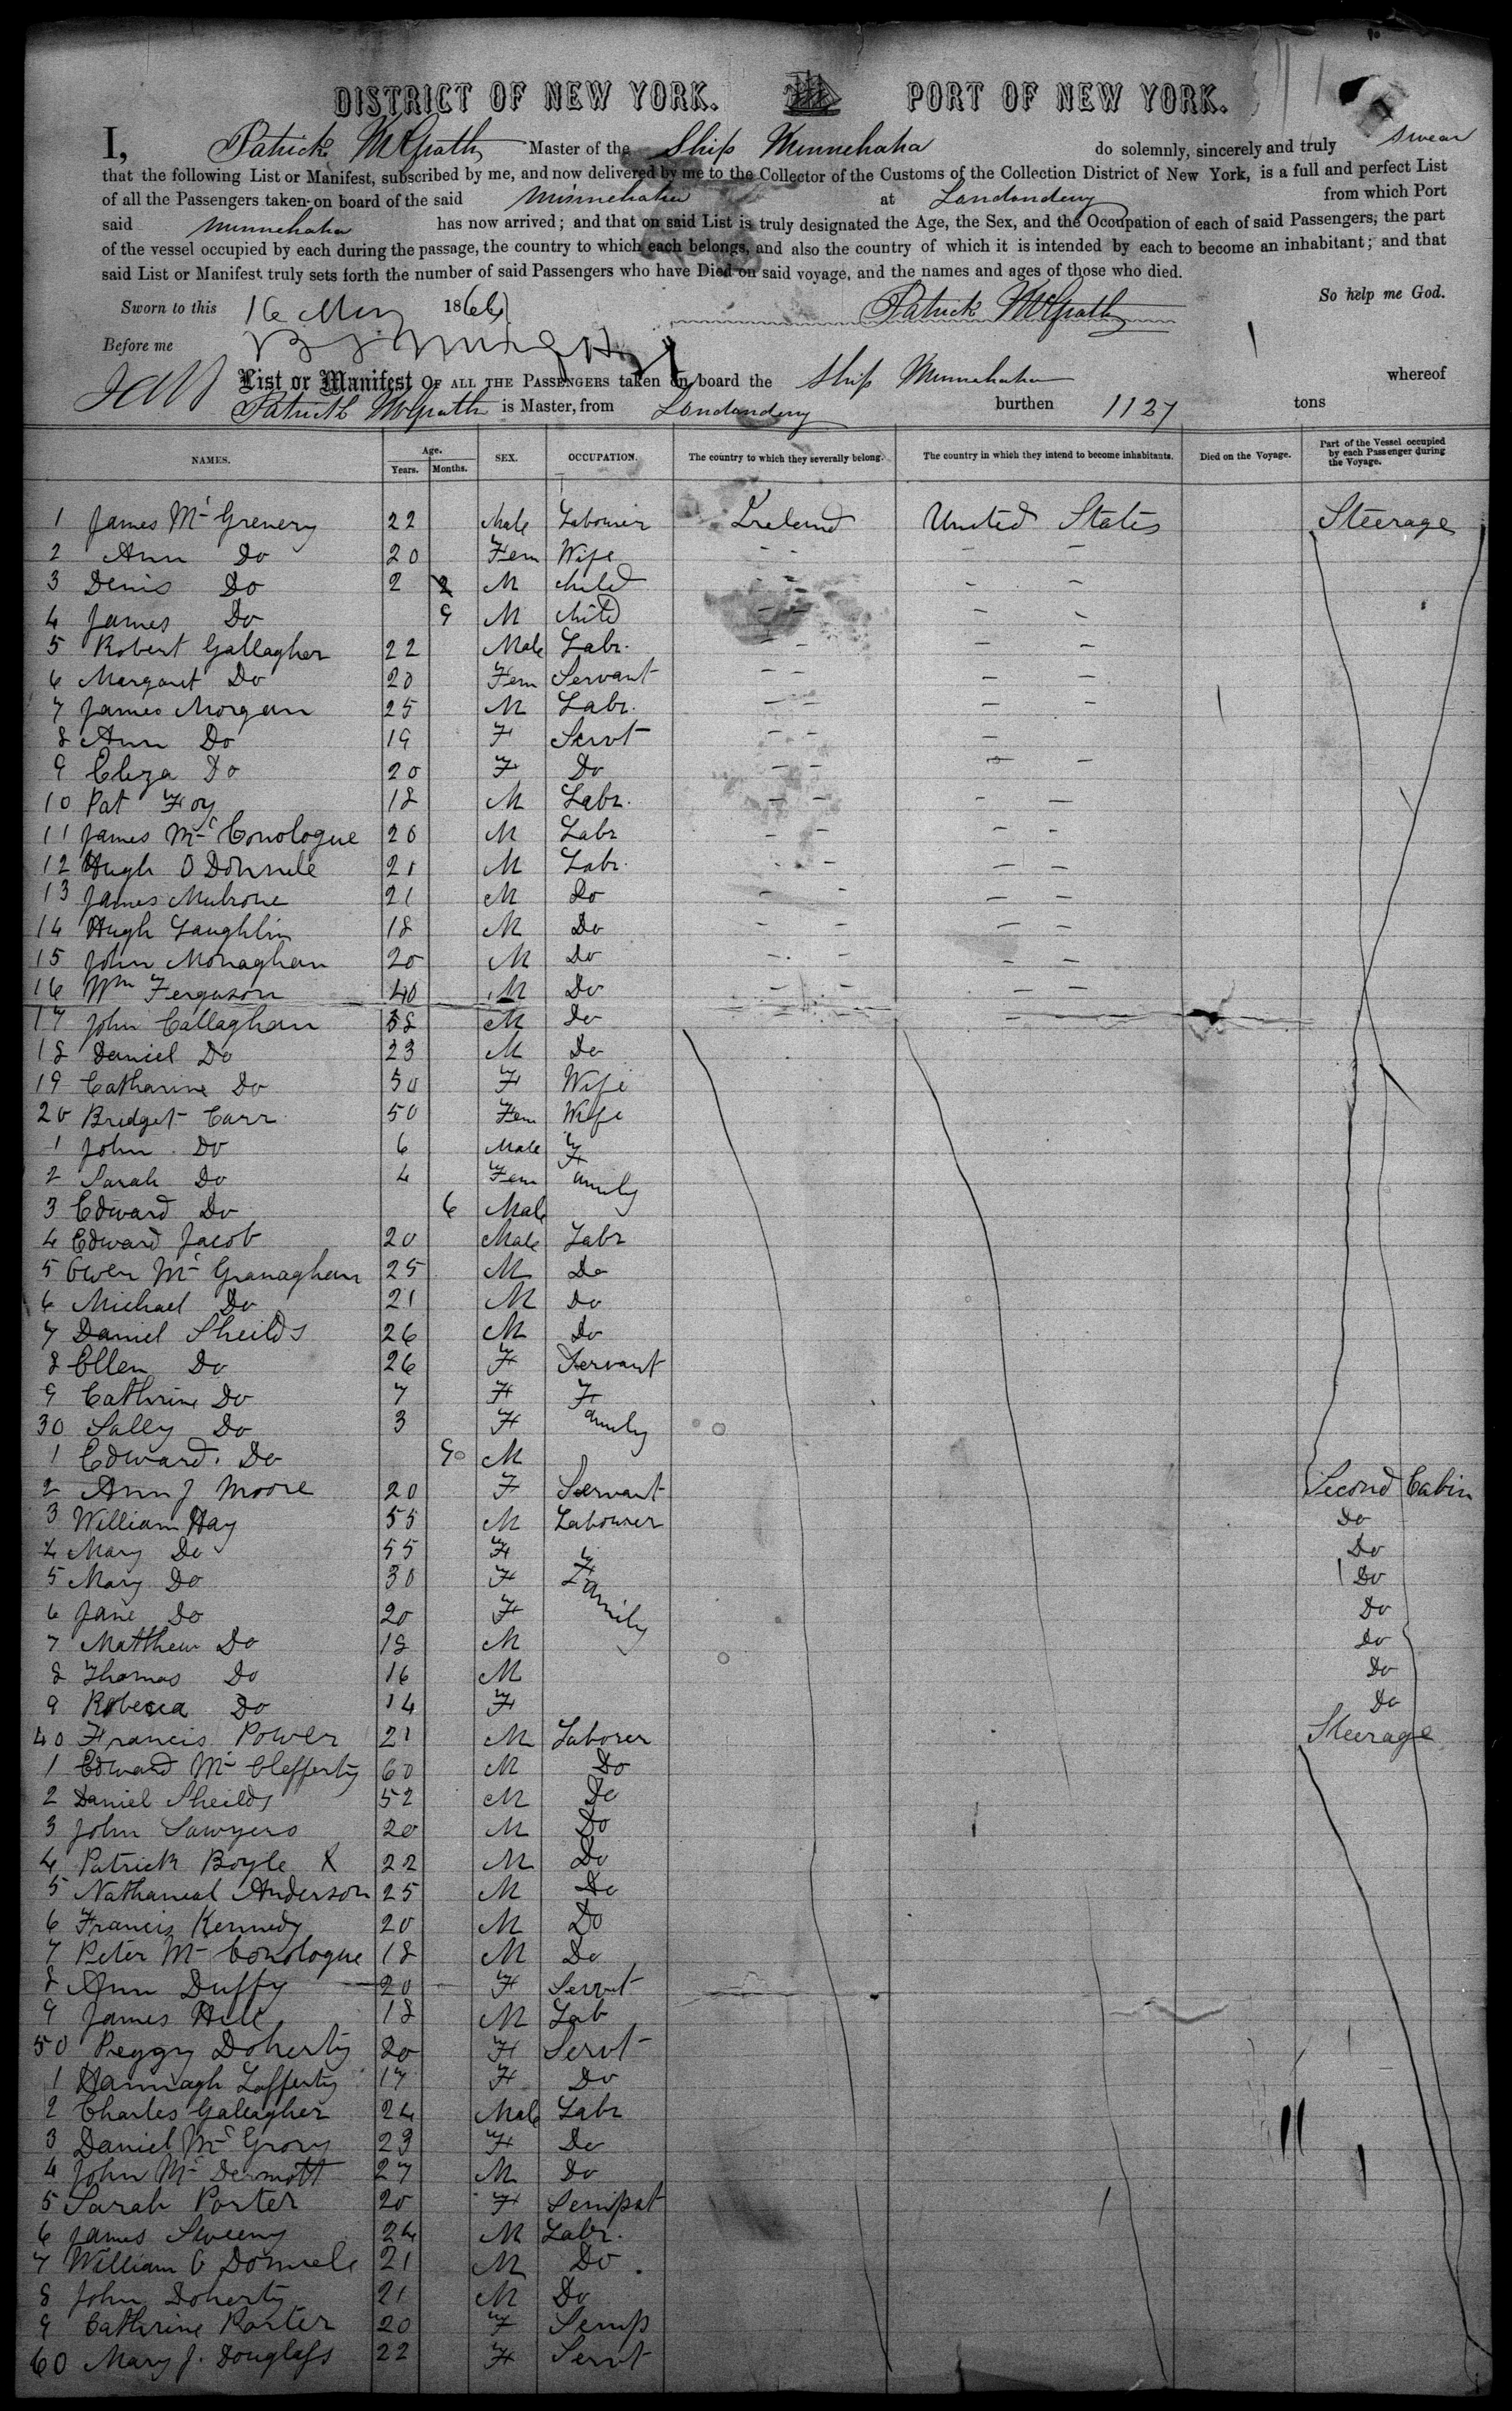 DISTRICT OF NEW YORK. PORT OF NEW YORK.
I, Patrick McGrath Master of the Ship Minnehaha do solemnly, sincerely and truly swear
that the following List or Manifest, subscribed by me, and now delivered by me to the Collector of the Customs of the Collection District of New York, is a full and perfect List
of all the Passengers taken on board of the said Minnehaha at Londonderry from which Port
said Minnehaha has now arrived; and that on said List is truly designated the Age, the Sex, and the Occupation of each of said Passengers, the part
of the vessel occupied by each during the passage, the country to which each belongs, and also the country of which it is intended by each to become an inhabitant; and that
said List or Manifest truly sets forth the number of said Passengers who have Died on said voyage, and the names and ages of those who died.
So help me God.
Sworn to this 16 May 1864 Patrick McGrath
Before me
List or Manifest OF ALL THE PASSENGERS taken on board the Ship Minnehaha whereof
Patrick McGrath is Master, from Londonderry burthen 1127 tons
NAMES. Age. Years. Months. SEX. OCCUPATION. The country to which they severally belong. The country in which they intend to become inhabitants. Died on the Voyage. Part of the Vessel occupied by each Passenger during the Voyage.
1 James Mc Grenery 22 Male Labourer Ireland United States Steerage
2 Ann Do 20 Fem Wife - - - -
3 Denis Do 2 M child - - - -
4 James Do 9 M child - - - -
5 Robert Gallagher 22 Male Labr. - - - -
6 Margaret Do 20 Fem Servant - - - -
7 James Morgan 25 M Labr. - - - -
8 Ann Do 19 F Servt - - -
9 Eliza Do 20 F Do - - - -
10 Pat Foy 18 M Labr. - - - -
11 James Mc Conologue 20 M Labr - - - -
12 Hugh O Donnele 21 M Labr. - - - -
13 James Mulrone 21 M Do - - - -
14 Hugh Laughlin 18 M Do - - - -
15 John Monaghan 20 M Do - - - -
16 Wm Ferguson 40 M Do - - - -
17 John Callaghan 58 M Do
18 Daniel Do 23 M Do
19 Catharine Do 50 F Wife
20 Bridget Carr 50 Fem Wife
1 John Do 6 Male Family
2 Sarah Do 4 Fem
3 Edward Do 6 Male
4 Edward Jacob 20 Male Labr
5 Owen Mc Granaghan 25 M Do
6 Michael Do 21 M Do
7 Daniel Sheilds 26 M Do
8 Ellen Do 26 F Servant
9 Cathrine Do 7 F Family
30 Sally Do 3 F
1 Edward. Do 9 M
2 Ann J Moore 20 F Servant Second Cabin
3 William Hay 55 M Labourer Do
4 Mary Do 55 F Family Do
5 Mary Do 30 F Do
6 Jane Do 20 F Do
7 Matthew Do 18 M Do
8 Thomas Do 16 M Do
9 Robecca Do 14 F Do
40 Francis Power 21 M Laborer Steerage
1 Edward Mc Clefferty 60 M Do
2 Daniel Sheilds 52 M Do
3 John Sawyers 20 M Do
4 Patrick Boyle X 22 M Do
5 Nathaneal Anderson 25 M Do
6 Francis Kennedy 20 M Do
7 Peter Mc Conologue 18 M Do
8 Ann Duffy 20 F Servt
9 James Hill 18 M Lab
50 Peggy Doherty 20 F Servt
1 Hannagh Lafferty 17 F Do
2 Charles Gallagher 24 Male Labr
3 Daniel Mc Grory 23 F Do
4 John Mc Dermott 27 M Do
5 Sarah Porter 20 F Sempst
6 James Sweeny 24 M Labr.
7 William O Donnele 21 M Do
8 John Doherty 21 M Do
9 Cathrine Porter 20 F Semp
60 Mary J. Douglass 22 F Servt